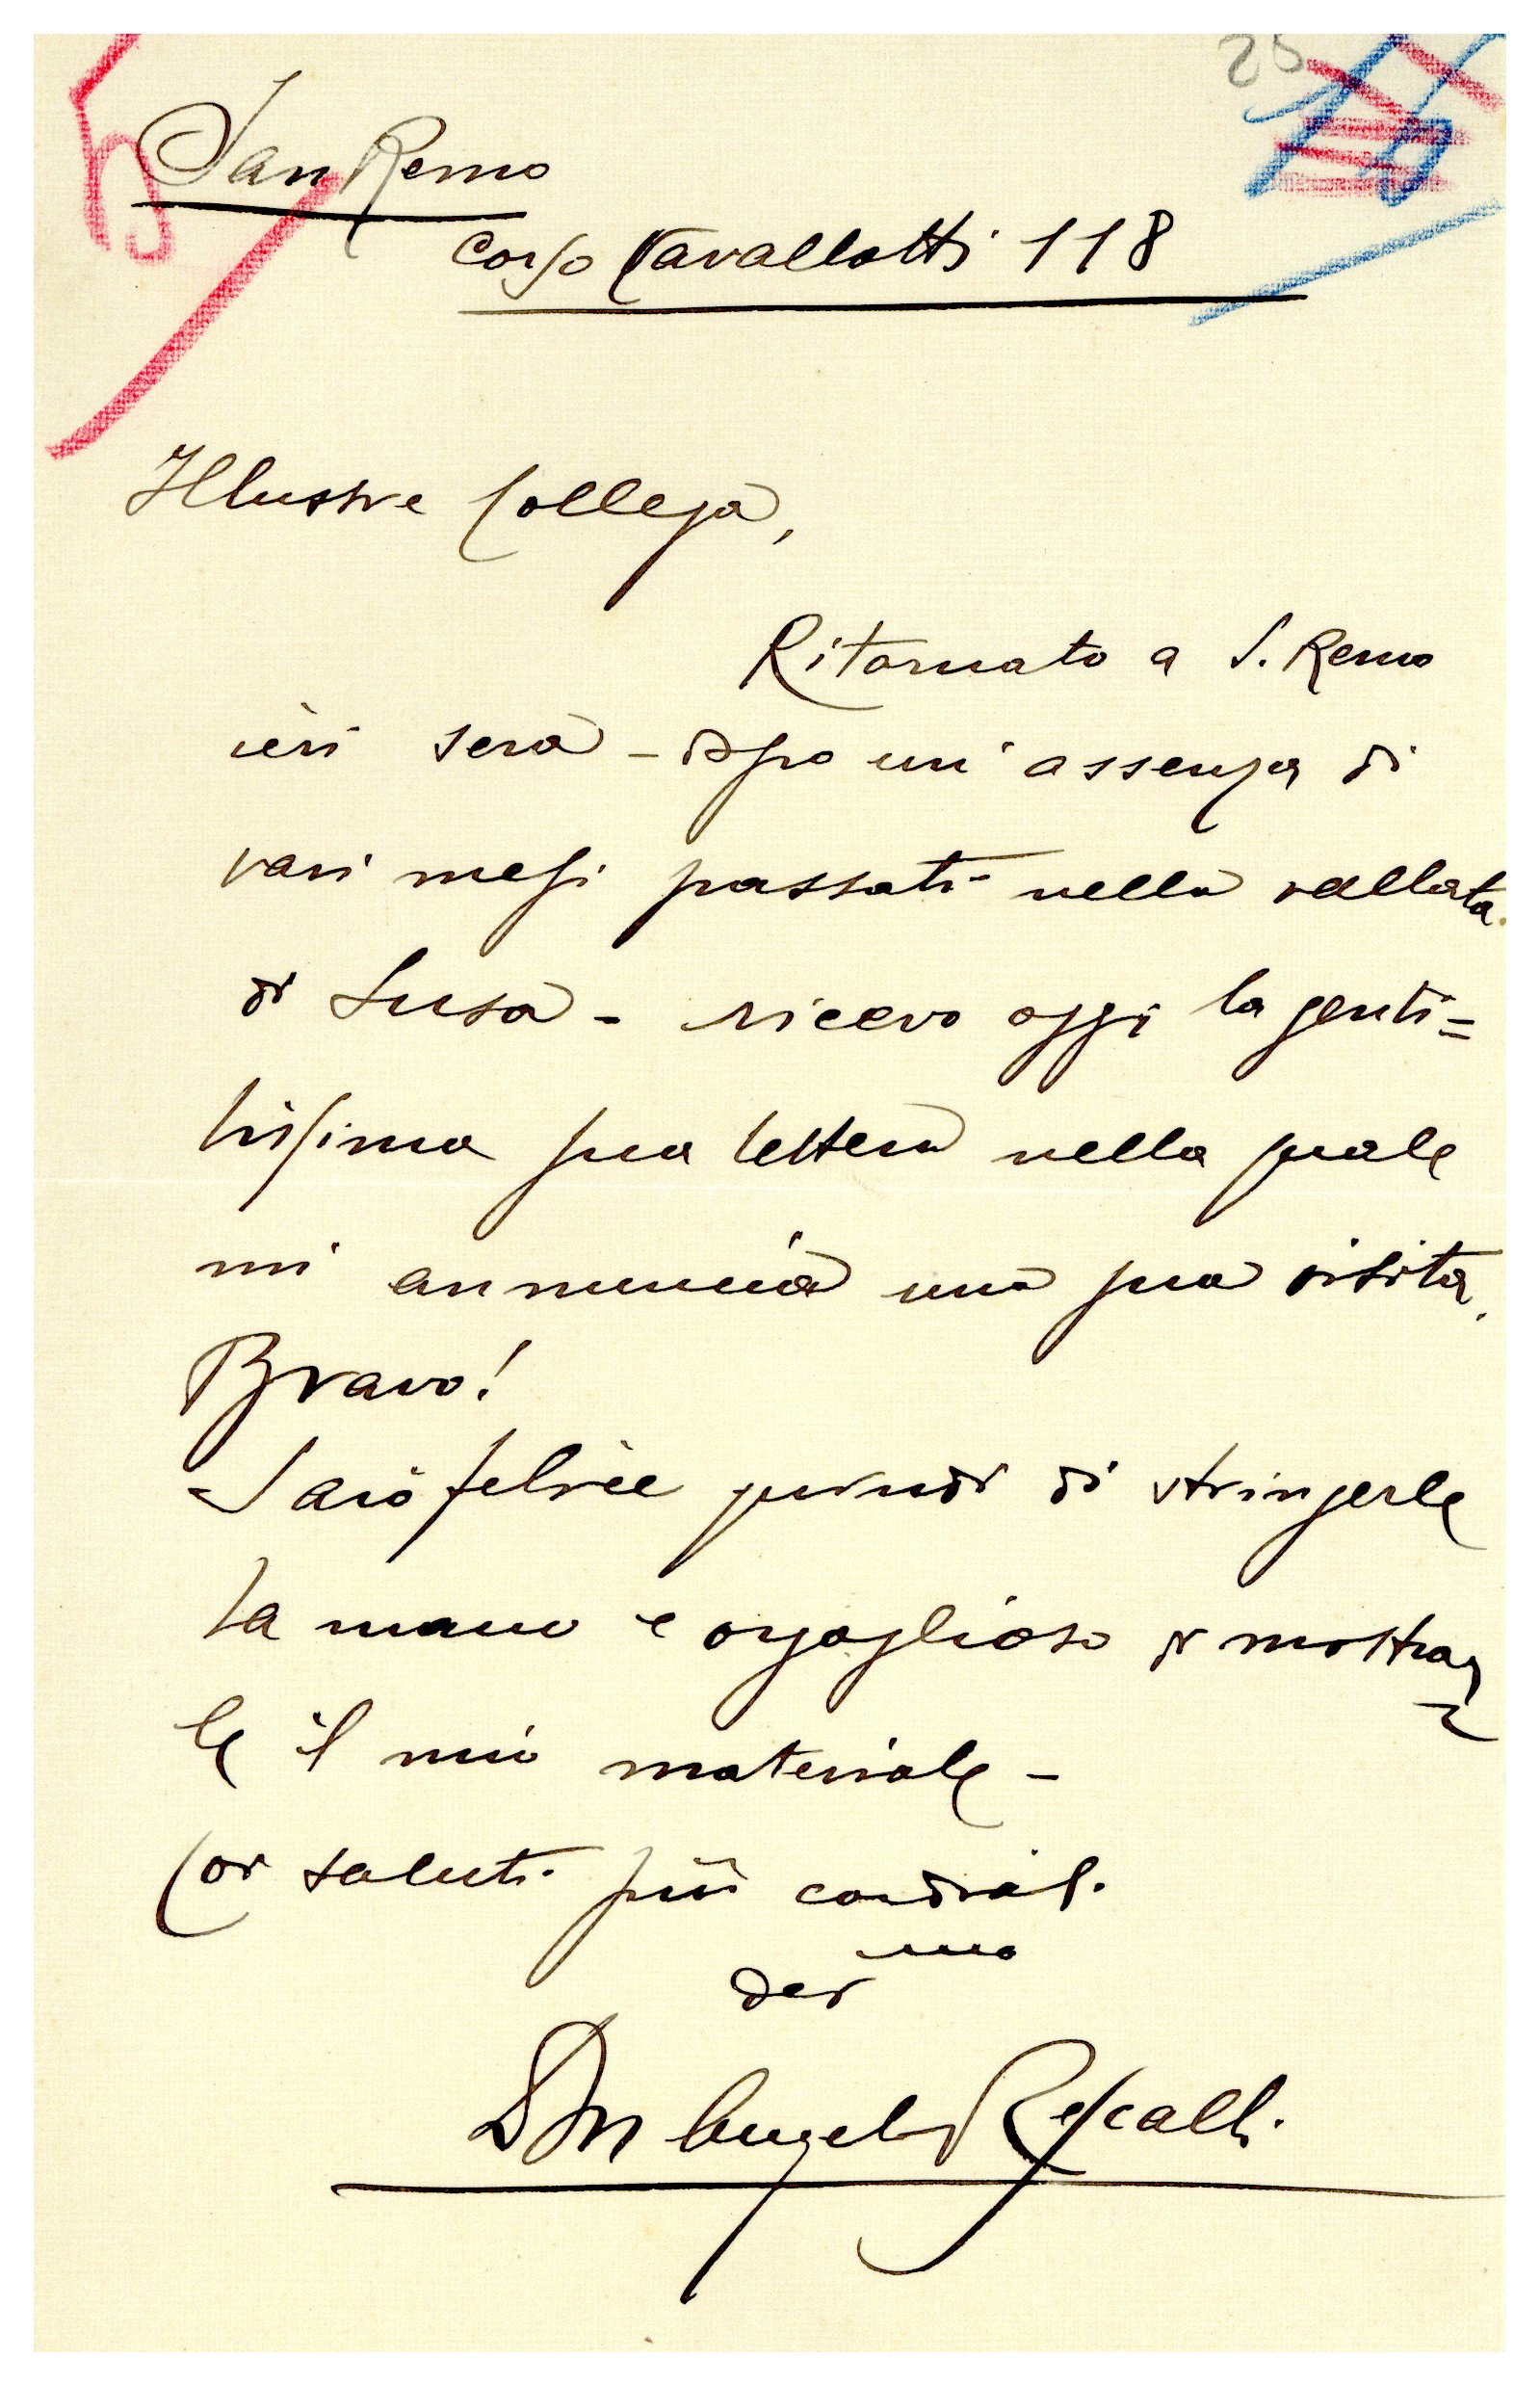 25
San Remo
Corso Cavallotti 118
Illustre Collega,
Ritornato a S. Remo
ieri sera - dopo un'assenza di
vari mesi passati nella vallata
di Susa - ricevo oggi la genti=
lissima sua lettera nella quale
mi annuncia una sua visita.
Bravo!
Sarò felice quindi di stringerle
la mano e orgoglioso di mostrar
le il mio materiale -
Coi saluti più cordiali.
dev mo
Don Angelo Rescalli.